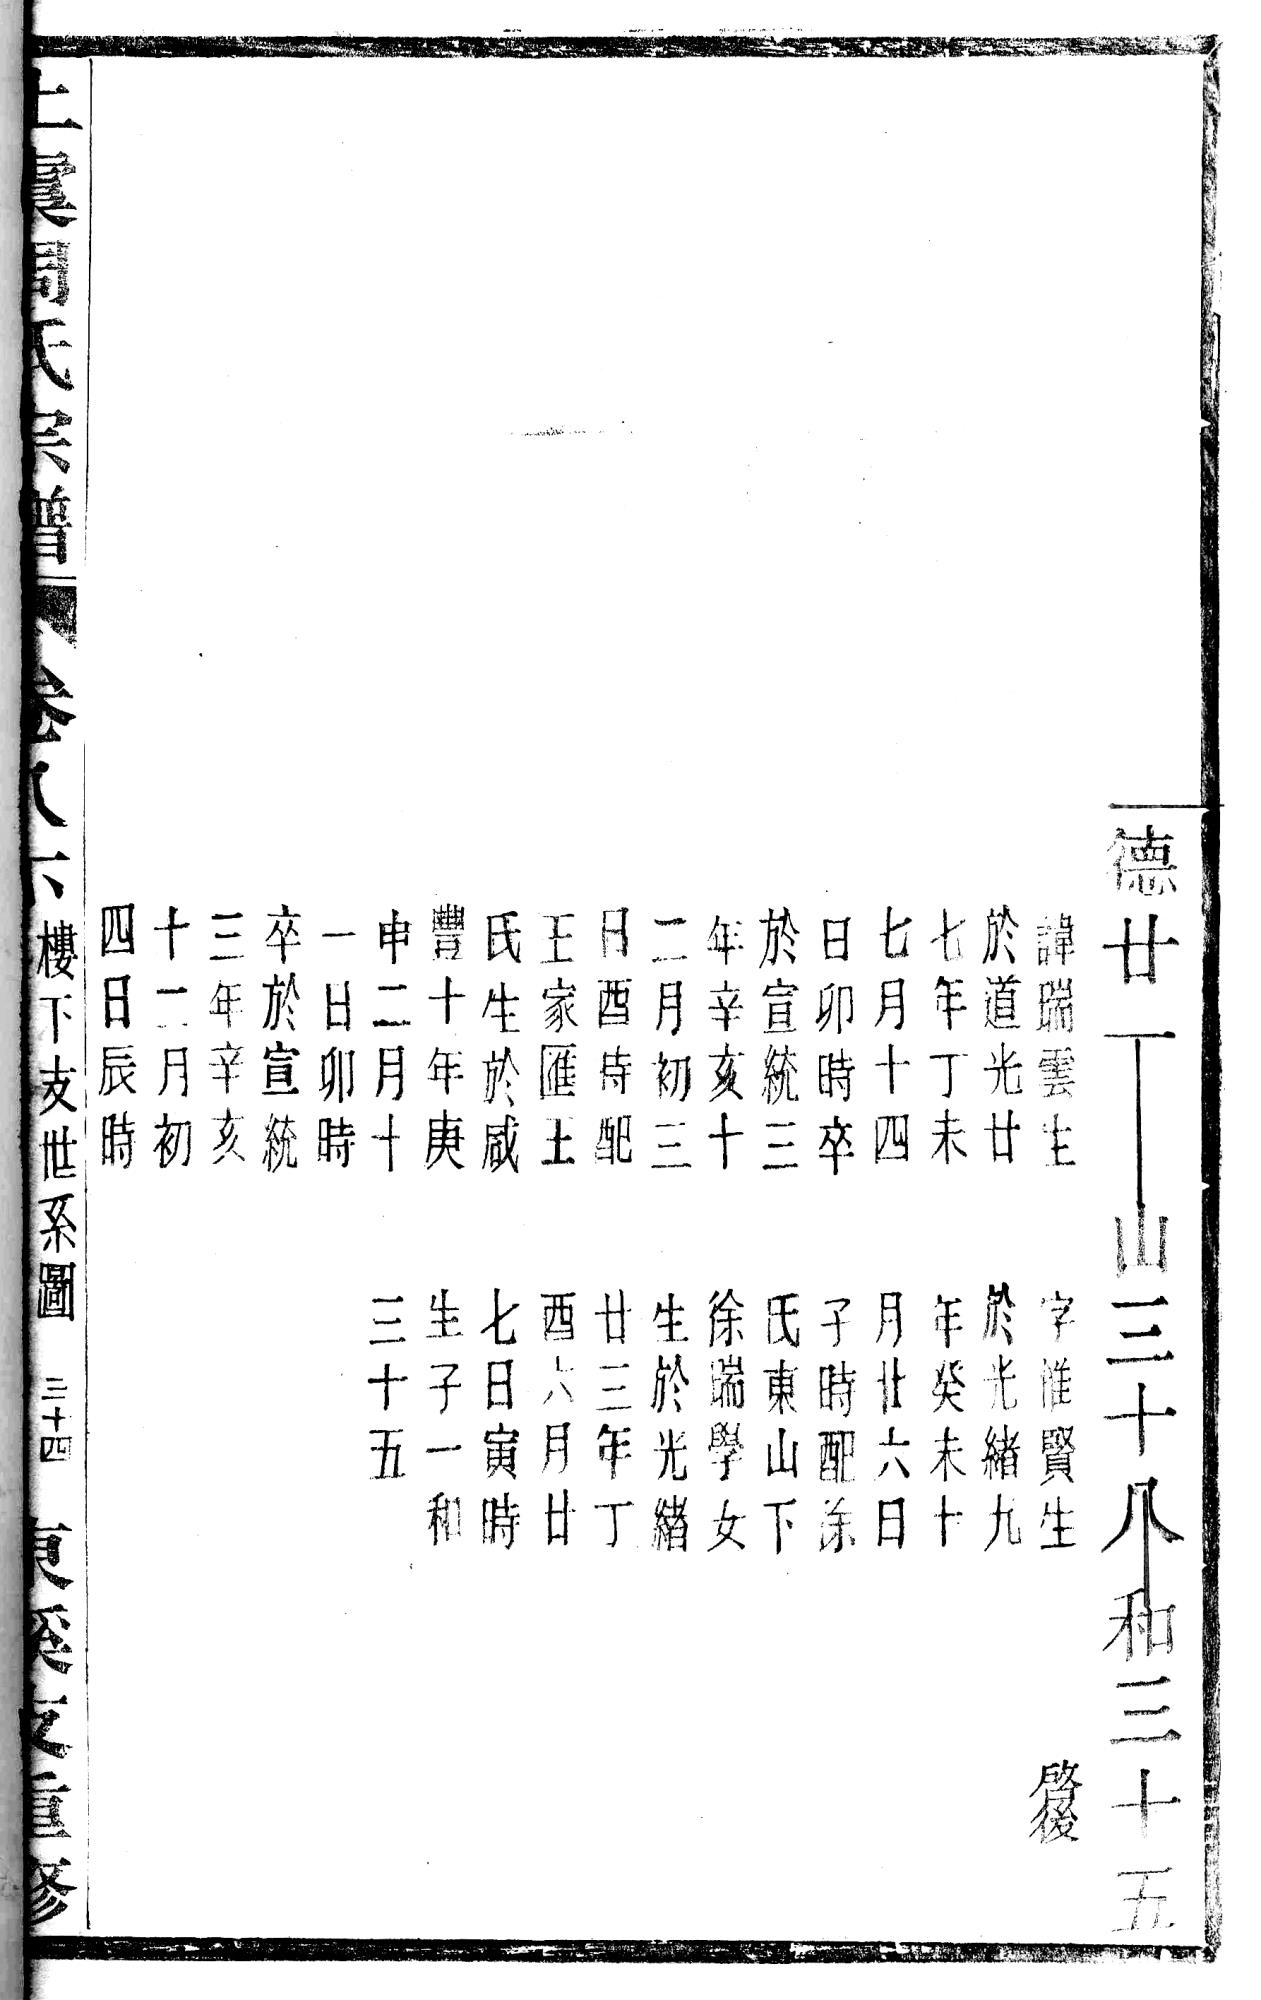 德廿一
山三十八
和三十五
諱瑞雲生
於道光廿
七年丁未
七月十四
日卯時卒
於宣統三
年辛亥十
二月初三
日酉時配
王家匯王
氏生於咸
豐十年庚
申二月十
一日卯時
卒於宣統
三年辛亥
十二月初
四日辰時
字惟賢生
於光緒九
年癸未十
月廿六日
子時配涂
氏東山下
徐瑞學女
生於光緒
廿三年丁
酉六月廿
七日寅時
生子一和
三十五
啓後
上虞周氏宗譜
卷八六
樓下支世系圖
三十四
東溪支重修